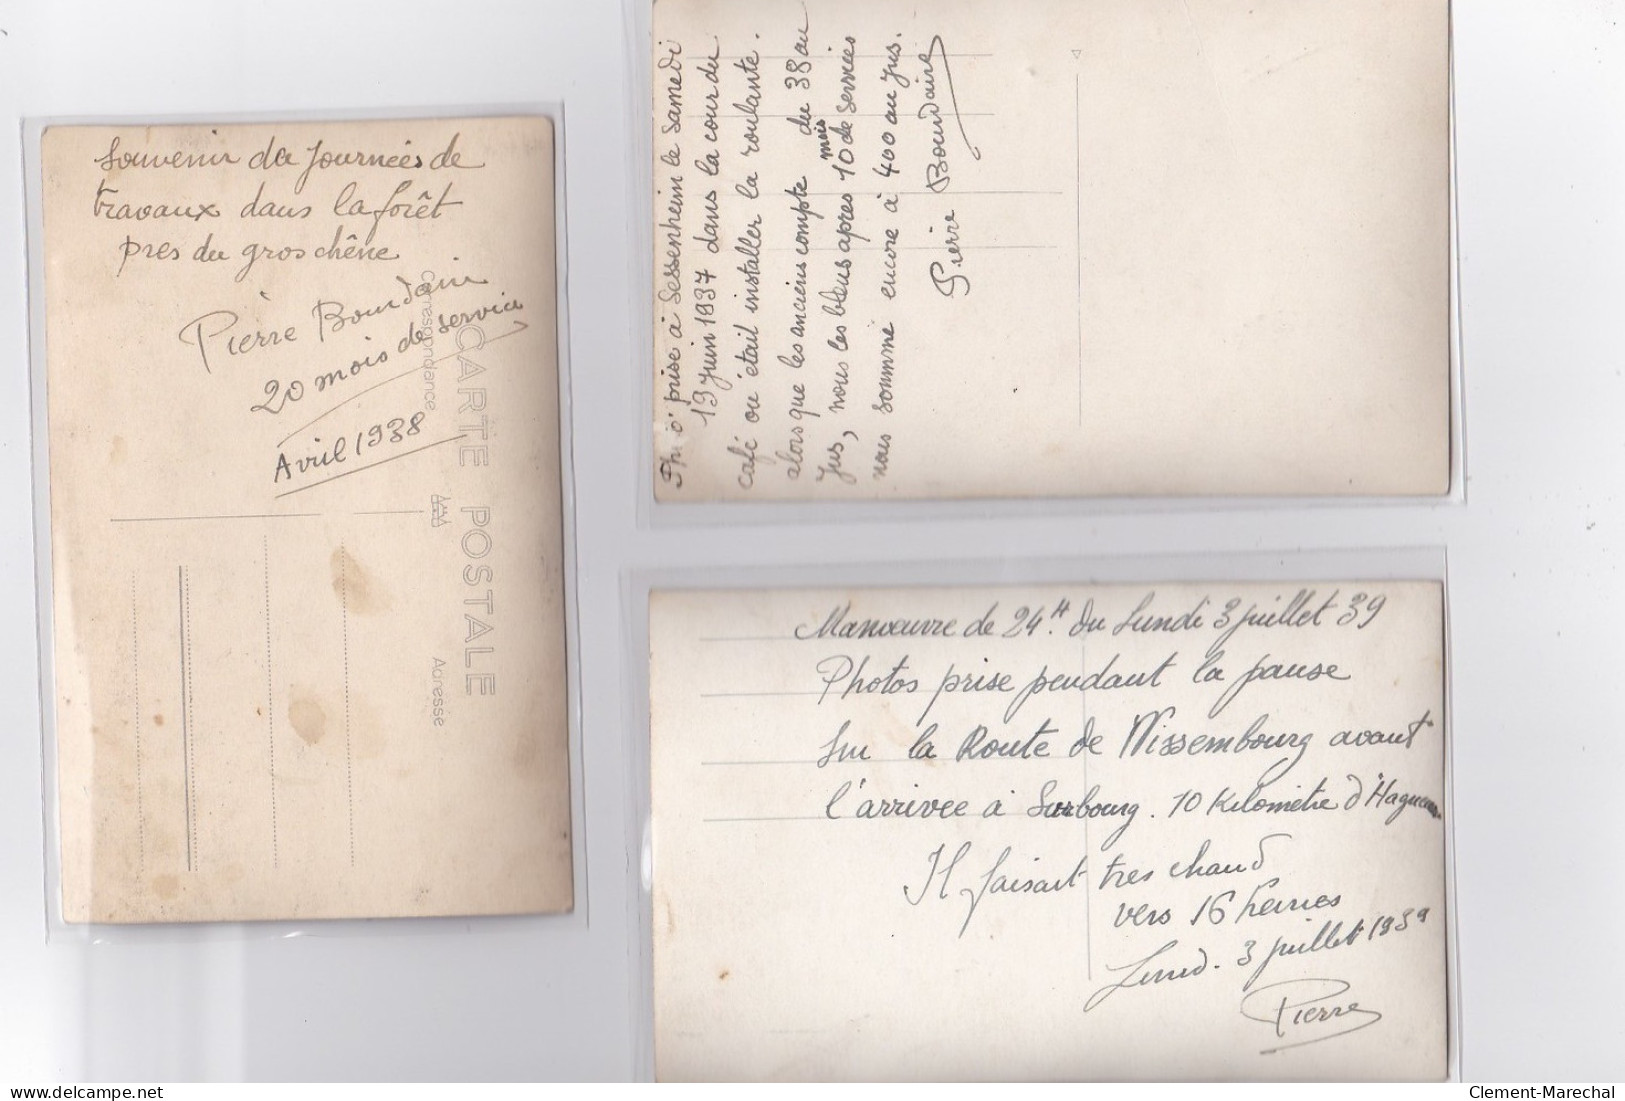 Souvenir de Journées de
travaux dans la forêt
près du gros chêne
Pierre Boudaire
20 mois de service
Avril 1938
CARTE POSTALE
Correspondance
Adresse
Photo prise à Sessenheim le Samedi
19 Juin 1937 dans la cour du
café où était installer la roulante.
alors que les anciens compte du 38 au
Jus, nous les bleus après 10 mois de Services
nous somme encore à 400 au Jus.
Pierre Boudaire
Manoeuvre de 24H. du Lundi 3 juillet 39
Photos prise pendant la pause
Sur la Route de Wissembourg avant
l'arrivée à Surbourg. 10 Kilomètre d'Haguenau
Il faisait tres chaud
vers 16 heures
Lund. 3 juillet 1939
Pierre
Clement-Marechal